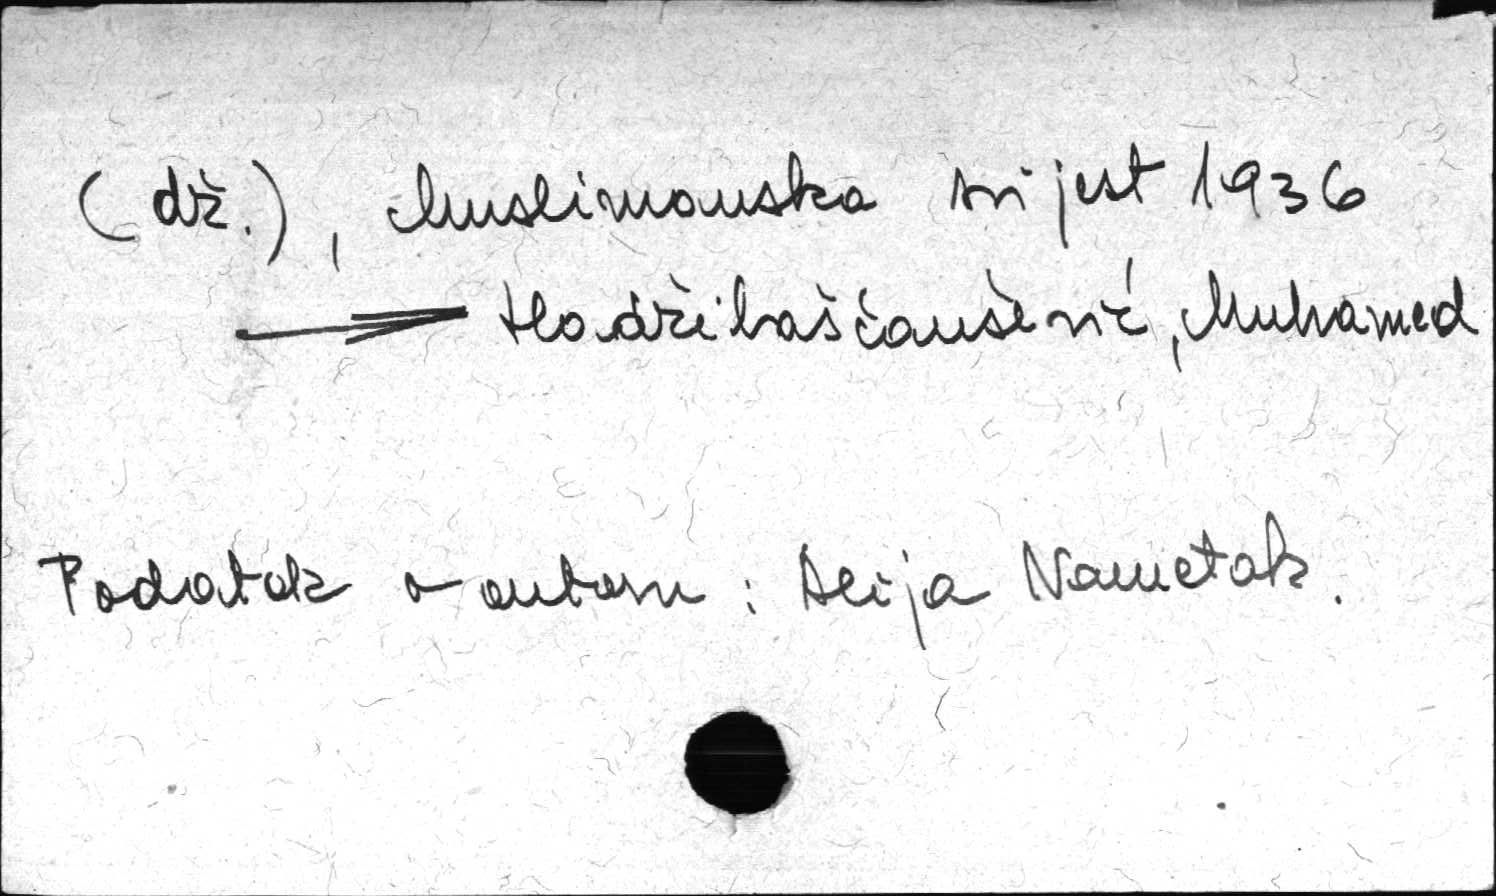 (dž.), Muslimanska svijest 1936
Hadžibaščaušević, Muhamed
Podatak o autoru : Alija Nametak.